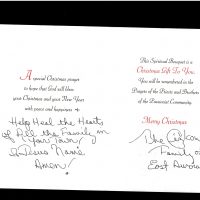 A special Christmas prayer
to hope that God will bless
your Christmas and your New Year
with peace and happiness —
Help Heal the Hearts
of All the Family in
Your Town
In Jesus Name
Amen
This Spiritual Bouquet is a
Christmas Gift To You.
You will be remembered in the
Prayers of the Priests and Brothers
of the Franciscan Community.
Merry Christmas
The
Family of
East Aurora